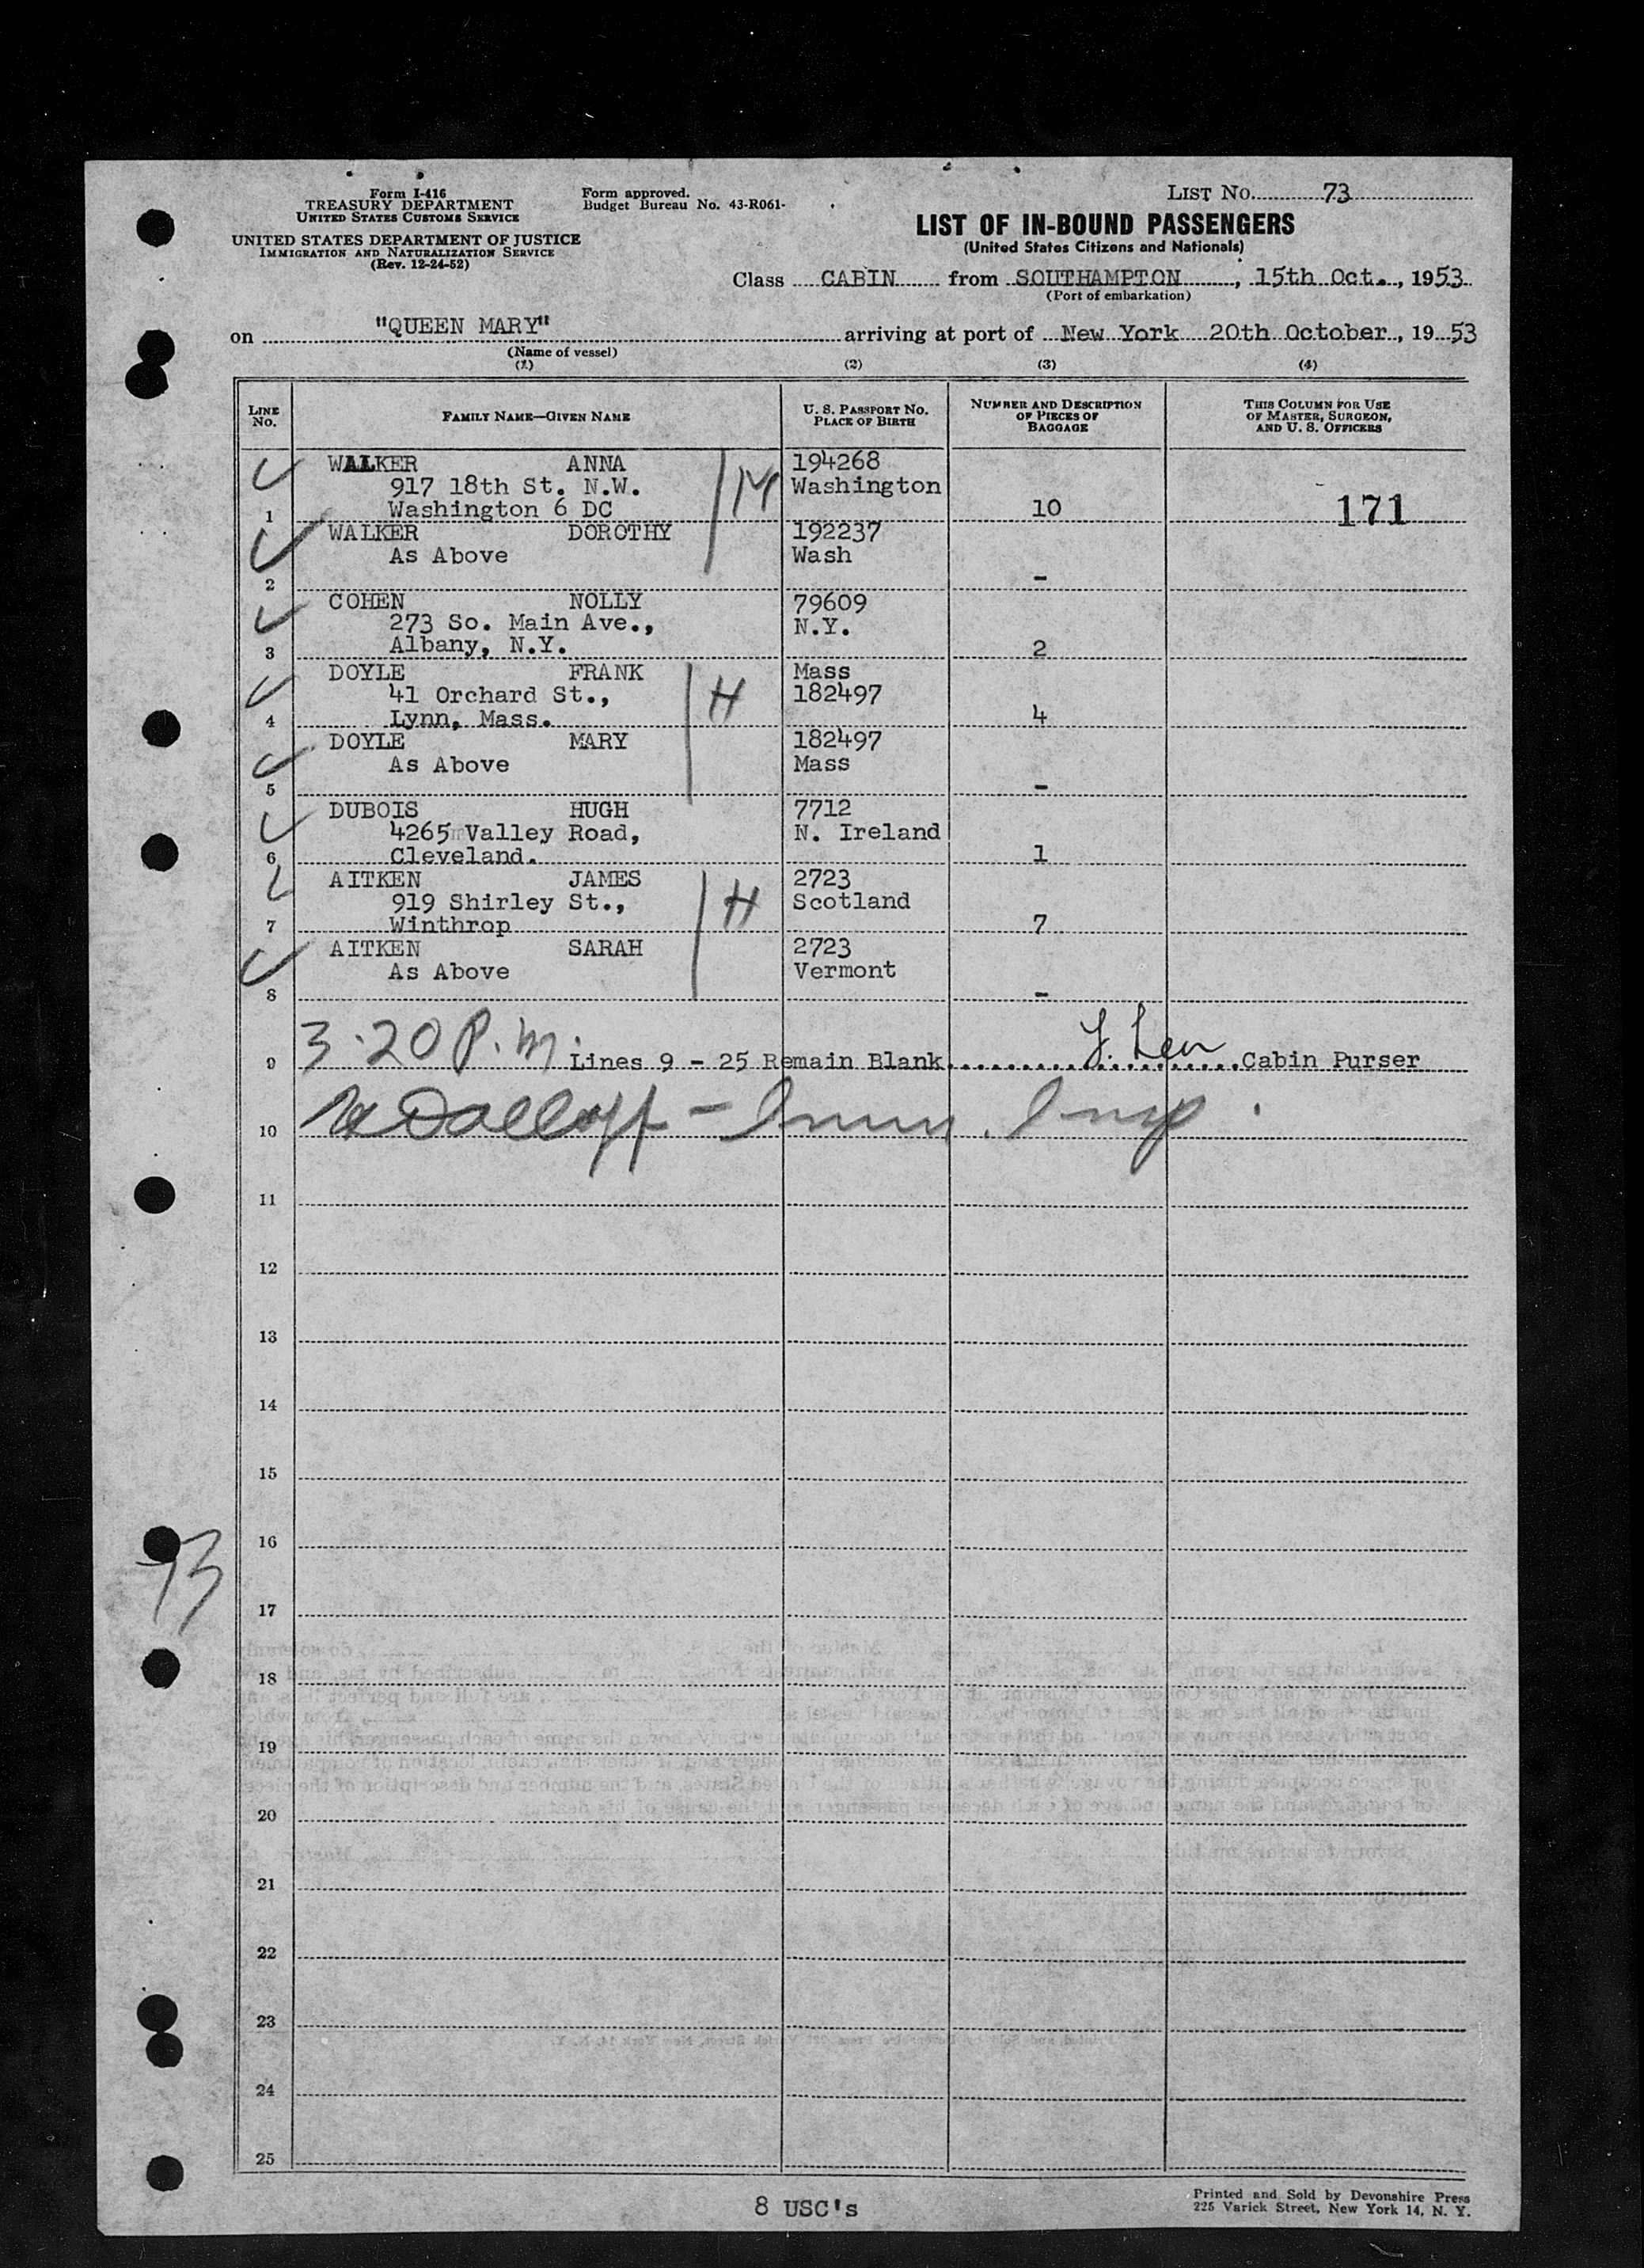 Form I-416
TREASURY DEPARTMENT
UNITED STATES CUSTOMS SERVICE
UNITED STATES DEPARTMENT OF JUSTICE
IMMIGRATION AND NATURALIZATION SERVICE
(Rev. 12-24-52)
Form approved.
Budget Bureau No. 43-R061-
LIST No. 73
LIST OF IN-BOUND PASSENGERS
(United States Citizens and Nationals)
Class CABIN from SOUTHAMPTON, 15th Oct., 1953
(Port of embarkation)
on "QUEEN MARY" arriving at port of New York 20th October, 1953
(Name of vessel)
(1) (2) (3) (4)
LINE No. FAMILY NAME—GIVEN NAME U. S. PASSPORT No. PLACE OF BIRTH NUMBER AND DESCRIPTION OF PIECES OF BAGGAGE THIS COLUMN FOR USE OF MASTER, SURGEON, AND U. S. OFFICERS
WALKER ANNA 194268
917 18th St. N.W. M Washington
1 Washington 6 DC 10 171
WALKER DOROTHY 192237
As Above Wash
2 -
COHEN NOLLY 79609
273 So. Main Ave., N.Y.
3 Albany, N.Y. 2
DOYLE FRANK Mass
41 Orchard St., H 182497
4 Lynn, Mass. 4
DOYLE MARY 182497
As Above Mass
5 -
DUBOIS HUGH 7712
4265 Valley Road, N. Ireland
6 Cleveland. 1
AITKEN JAMES 2723
919 Shirley St., H Scotland
7 Winthrop 7
AITKEN SARAH 2723
As Above Vermont
8 -
3.20 P.M.
9 Lines 9 - 25 Remain Blank Cabin Purser
10 Immn. Insp.
11
12
13
14
15
16
73
17
18
19
20
21
22
23
24
25
8 USC's
Printed and Sold by Devonshire Press
225 Varick Street, New York 14, N. Y.